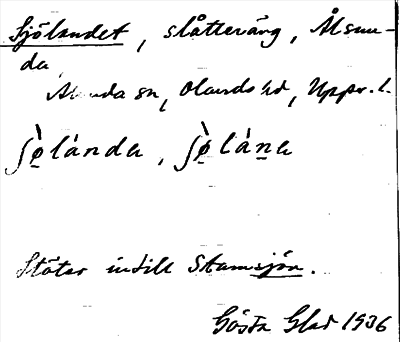 Sjölandet, slåtteräng, Ålsun-
da,
Alunda sn, Olands hd, Upps. l.
ʃø̀lánda, ʃø̀lána
Stöter intill Stamsjön.
Gösta Glad 1936